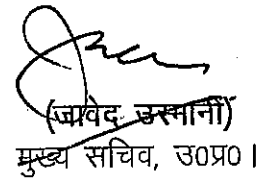 (जावेद उस्मानी)
मुख्य सचिव, उ०प्र०।